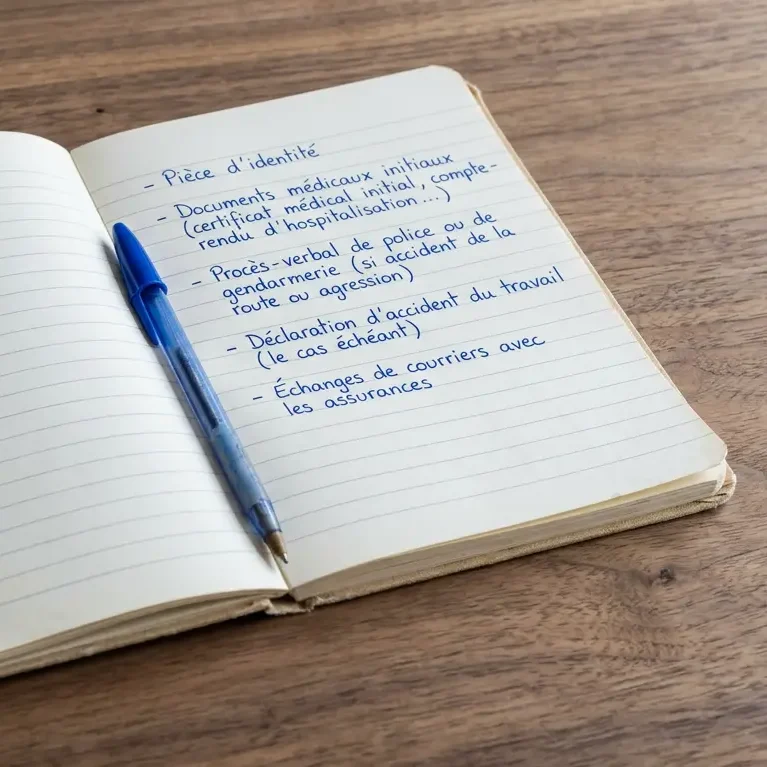 - Pièce d'identité
- Documents médicaux initiaux
(certificat médical initial, compte-
rendu d'hospitalisation...)
- Procès-verbal de police ou de
gendarmerie (si accident de la
route ou agression)
- Déclaration d'accident du travail
(le cas échéant)
- Échanges de courriers avec
les assurances